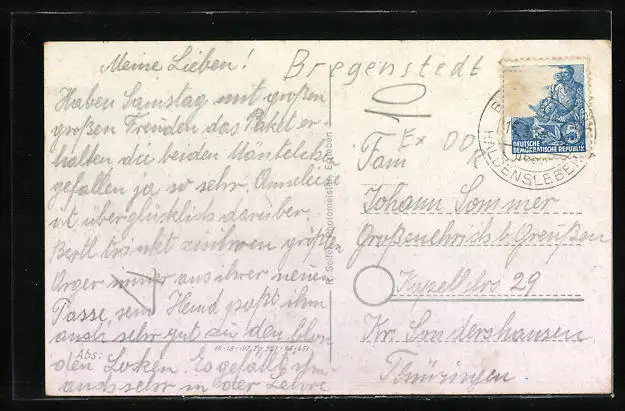 Meine Lieben!
Bregenstedt
Haben Samstag mit großen
großen Freuden das Paket er
halten die beiden Mäntelchen
gefallen ja so sehr. Anneliese
ist überglücklich darüber.
Bertl trinkt zu ihren größten
Ärger immer aus ihrer neuen
Tasse, sein Hemd paßt ihm
auch sehr gut zu den
den Locken. Es gefällt ihm
auch sehr in der Lehre
Abs:
R. Seifert Photomeister, Eisleben
10
Ex DDR
Fam
Johann Sommer
Großenehrich b. Greußen
29
Kr. Sondershausen
Thüringen
DEUTSCHE
DEMOKRATISCHE REPUBLIK
5
HALDENSLEBEN